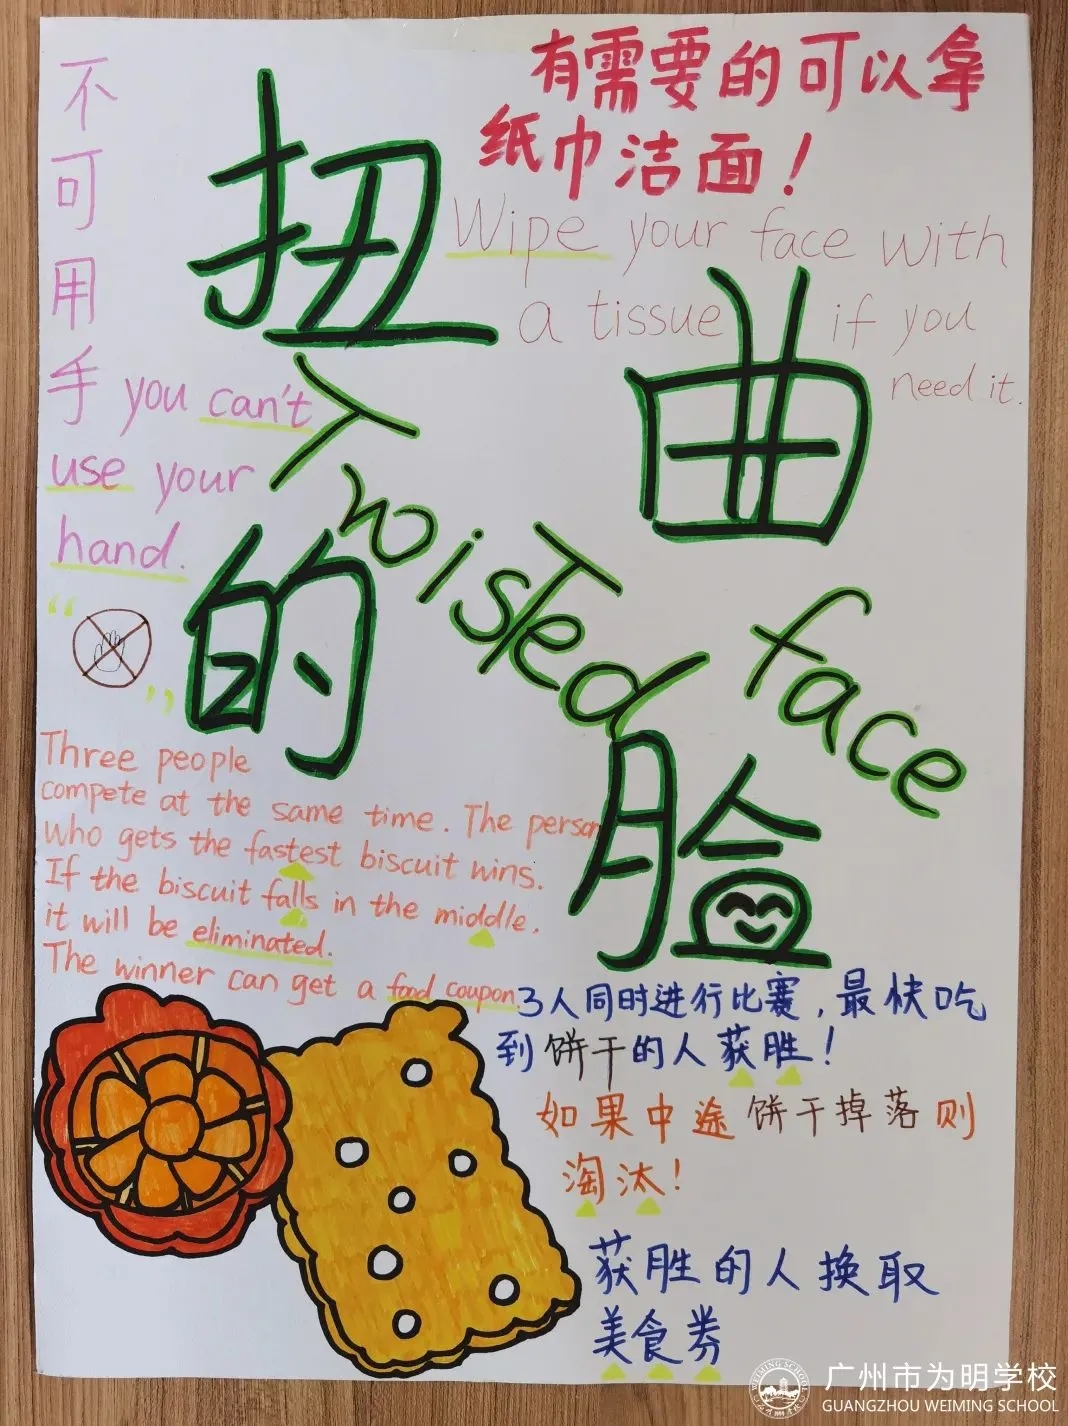 有需要的可以拿
纸巾洁面！
Wipe your face with
a tissue if you
need it.
不可用手
you can't
use your
hand.
扭曲的脸
Twisted face
Three people
compete at the same time. The person
who gets the fastest biscuit wins.
If the biscuit falls in the middle,
it will be eliminated.
The winner can get a food coupon.
3人同时进行比赛，最快吃
到饼干的人获胜！
如果中途饼干掉落则
淘汰！
获胜的人换取
美食券
WEIMING SCHOOL
广州市为明学校
GUANGZHOU WEIMING SCHOOL